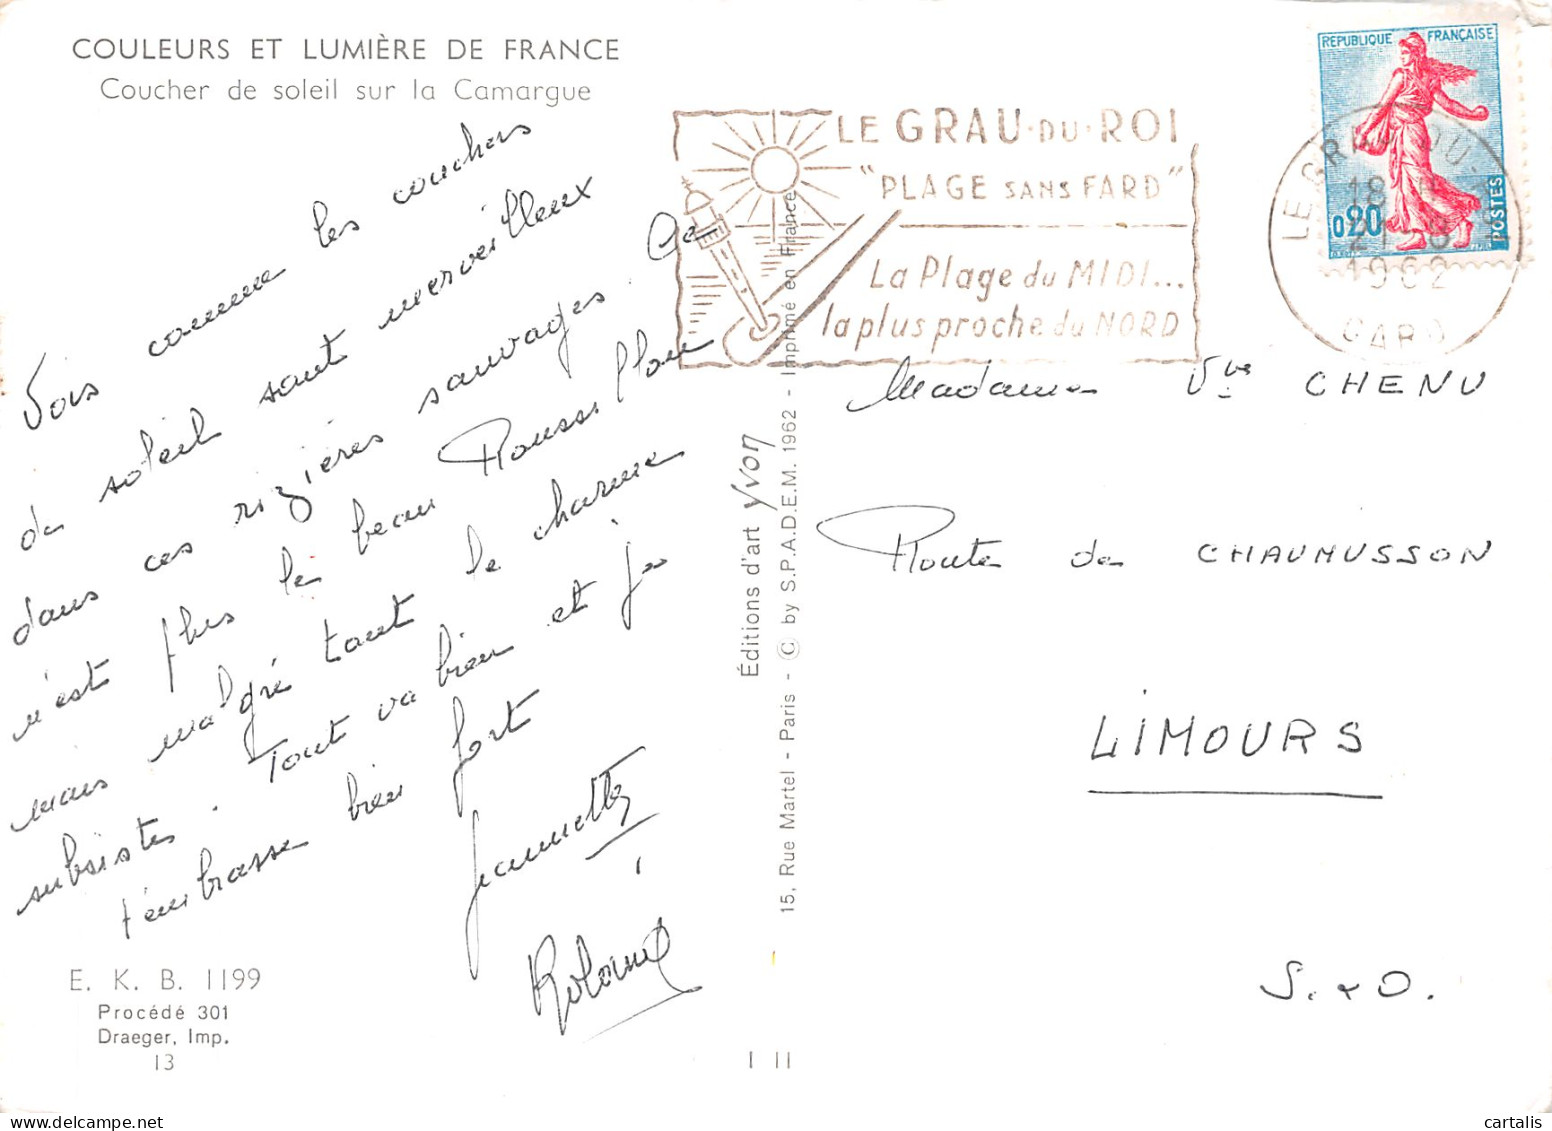 COULEURS ET LUMIÈRE DE FRANCE
Coucher de soleil sur la Camargue
Vois comme les couchers
de soleil sont merveilleux
dans ces rizières sauvages. Ce
n'est plus le beau Roussillon
mais malgré tout le charme
subsiste. Tout va bien et je
t'embrasse bien fort
Jeannette
Roland
E. K. B. 1199
Procédé 301
Draeger, Imp.
13
Éditions d'art yvon
15, Rue Martel - Paris - © by S.P.A.D.E.M. 1962 - Imprimé en France
I II
LE GRAU·DU·ROI
"PLAGE SANS FARD"
La Plage du MIDI...
la plus proche du NORD
REPUBLIQUE FRANÇAISE
0,20
POSTES
LE GRAU DU
18
21 8
1962
GARD
Madame Vve CHENU
Route de CHAUMUSSON
LIMOURS
S. & O.
cartalis